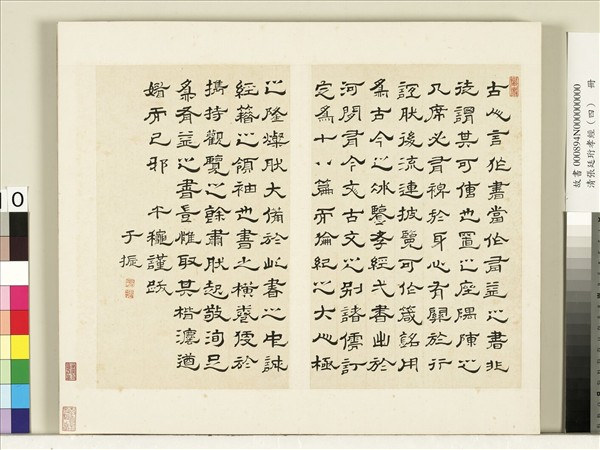 古人言作書當作有益之書非
徒謂其可傳也置之座隅陳之
几席必有裨於身心有關於行
誼然後流連披覽可作箴銘用
為古今之冰鑒孝經一書出於
河間有今文古文之別諸儒訂
定為十八篇而倫紀之大人極
之隆燦然大備於此書之中誠
經籍之領袖也書之橫卷便於
攜持觀覽之餘肅然起敬洵足
為有益之書豈惟取其楷灋遒
而已邪 謹跋
于振
故書 000894N000000000
清張廷珩孝經(四) 冊
10